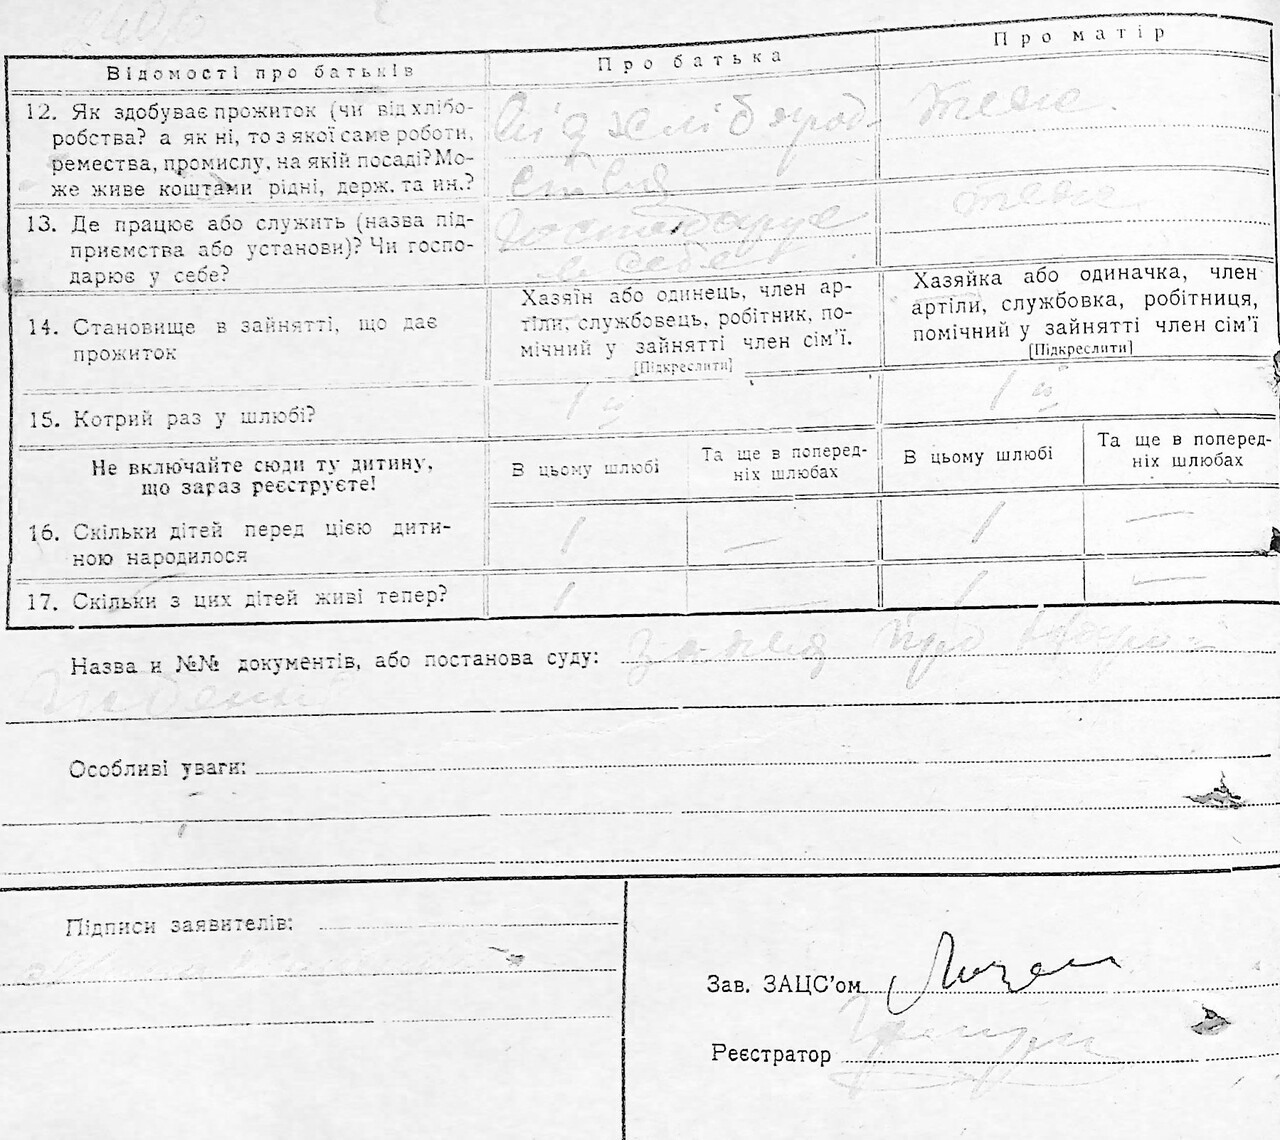 Відомості про батьків
Про батька
Про матір
12. Як здобуває прожиток (чи від хлібо-
робства? а як ні, то з якої саме роботи,
ремества, промислу, на якій посаді? Мо-
же живе коштами рідні, держ. та ин.?
Від хлібороб-
ства
теж
13. Де працює або служить (назва під-
приємства або установи)? Чи госпо-
дарює у себе?
Господарує
в себе
теж
14. Становище в зайнятті, що дає
прожиток
Хазяїн або одинець, член ар-
тіли, службовець, робітник, по-
мічний у зайнятті член сім'ї.
[Підкреслити]
Хазяйка або одиначка, член
артіли, службовка, робітниця,
помічний у зайнятті член сім'ї
[Підкреслити]
15. Котрий раз у шлюбі?
1 й
1 й
Не включайте сюди ту дитину,
що зараз реєструєте!
В цьому шлюбі
Та ще в поперед-
ніх шлюбах
В цьому шлюбі
Та ще в поперед-
ніх шлюбах
16. Скільки дітей перед цією дити-
ною народилося
1
—
1
—
17. Скільки з цих дітей живі тепер?
1
—
1
—
Назва и №№ документів, або постанова суду: заява про
Особливі уваги:
Підписи заявителів:
Зав. ЗАЦС'ом
Реєстратор